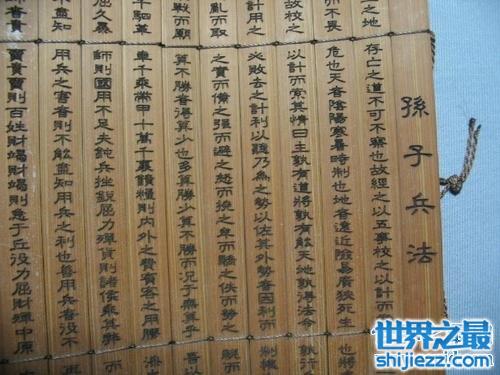 孫子兵法
之地
存亡之道不可不察也故經之以五事校之以計而
而不畏
危也天者陰陽寒暑時制也地者遠近險易廣狹死生
也將
故校之
以計而索其情曰主孰有道將孰有能天地孰得法令
孰行
計用之
必敗去之計利以聽乃為之勢以佐其外勢者因利而
制權
亂而取
之實而備之強而避之怒而撓之卑而驕之佚而勞之
親而
戰而廟
算不勝者得算少也多算勝少算不勝而況于無算乎
吾以
千駟革
車千乘帶甲十萬千里饋糧則內外之費賓客之用膠
屈久暴
師則國用不足夫鈍兵挫銳屈力殫貨則諸侯乘其弊
而
不盡知
用兵之害者則不能盡知用兵之利也善用兵者役不
再
師者貴
賣貴賣則百姓財竭財竭則急于丘役力屈財殫中原
內
世界之最
shijiezzj.com